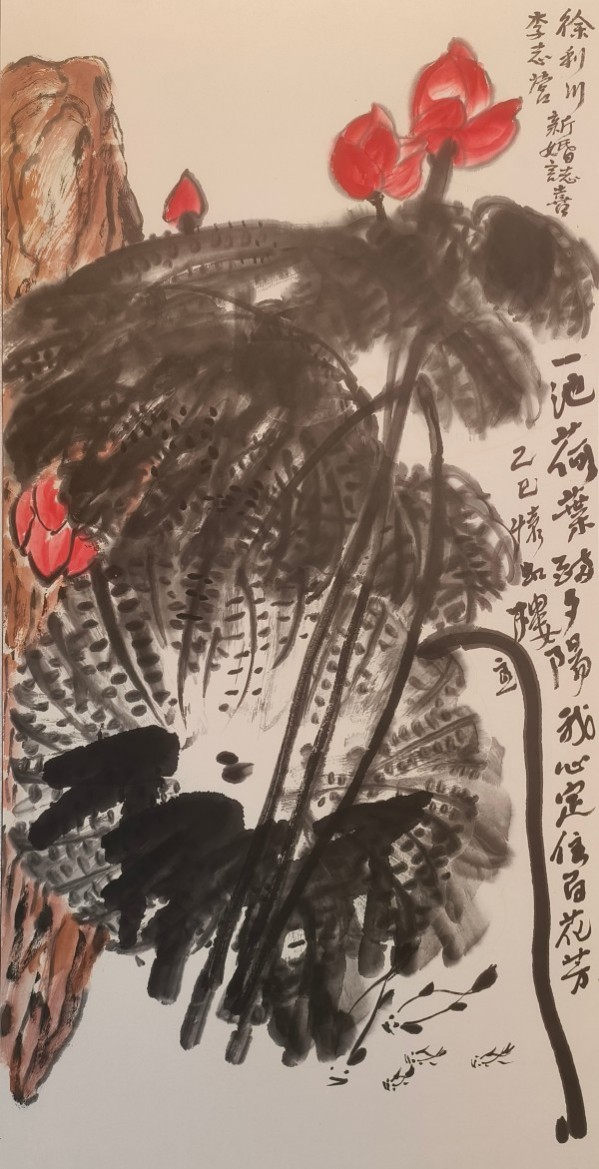 徐利川
李志营
新婚誌喜
一池荷葉醉夕陽我心定住百花芳
乙巳懷如樓画